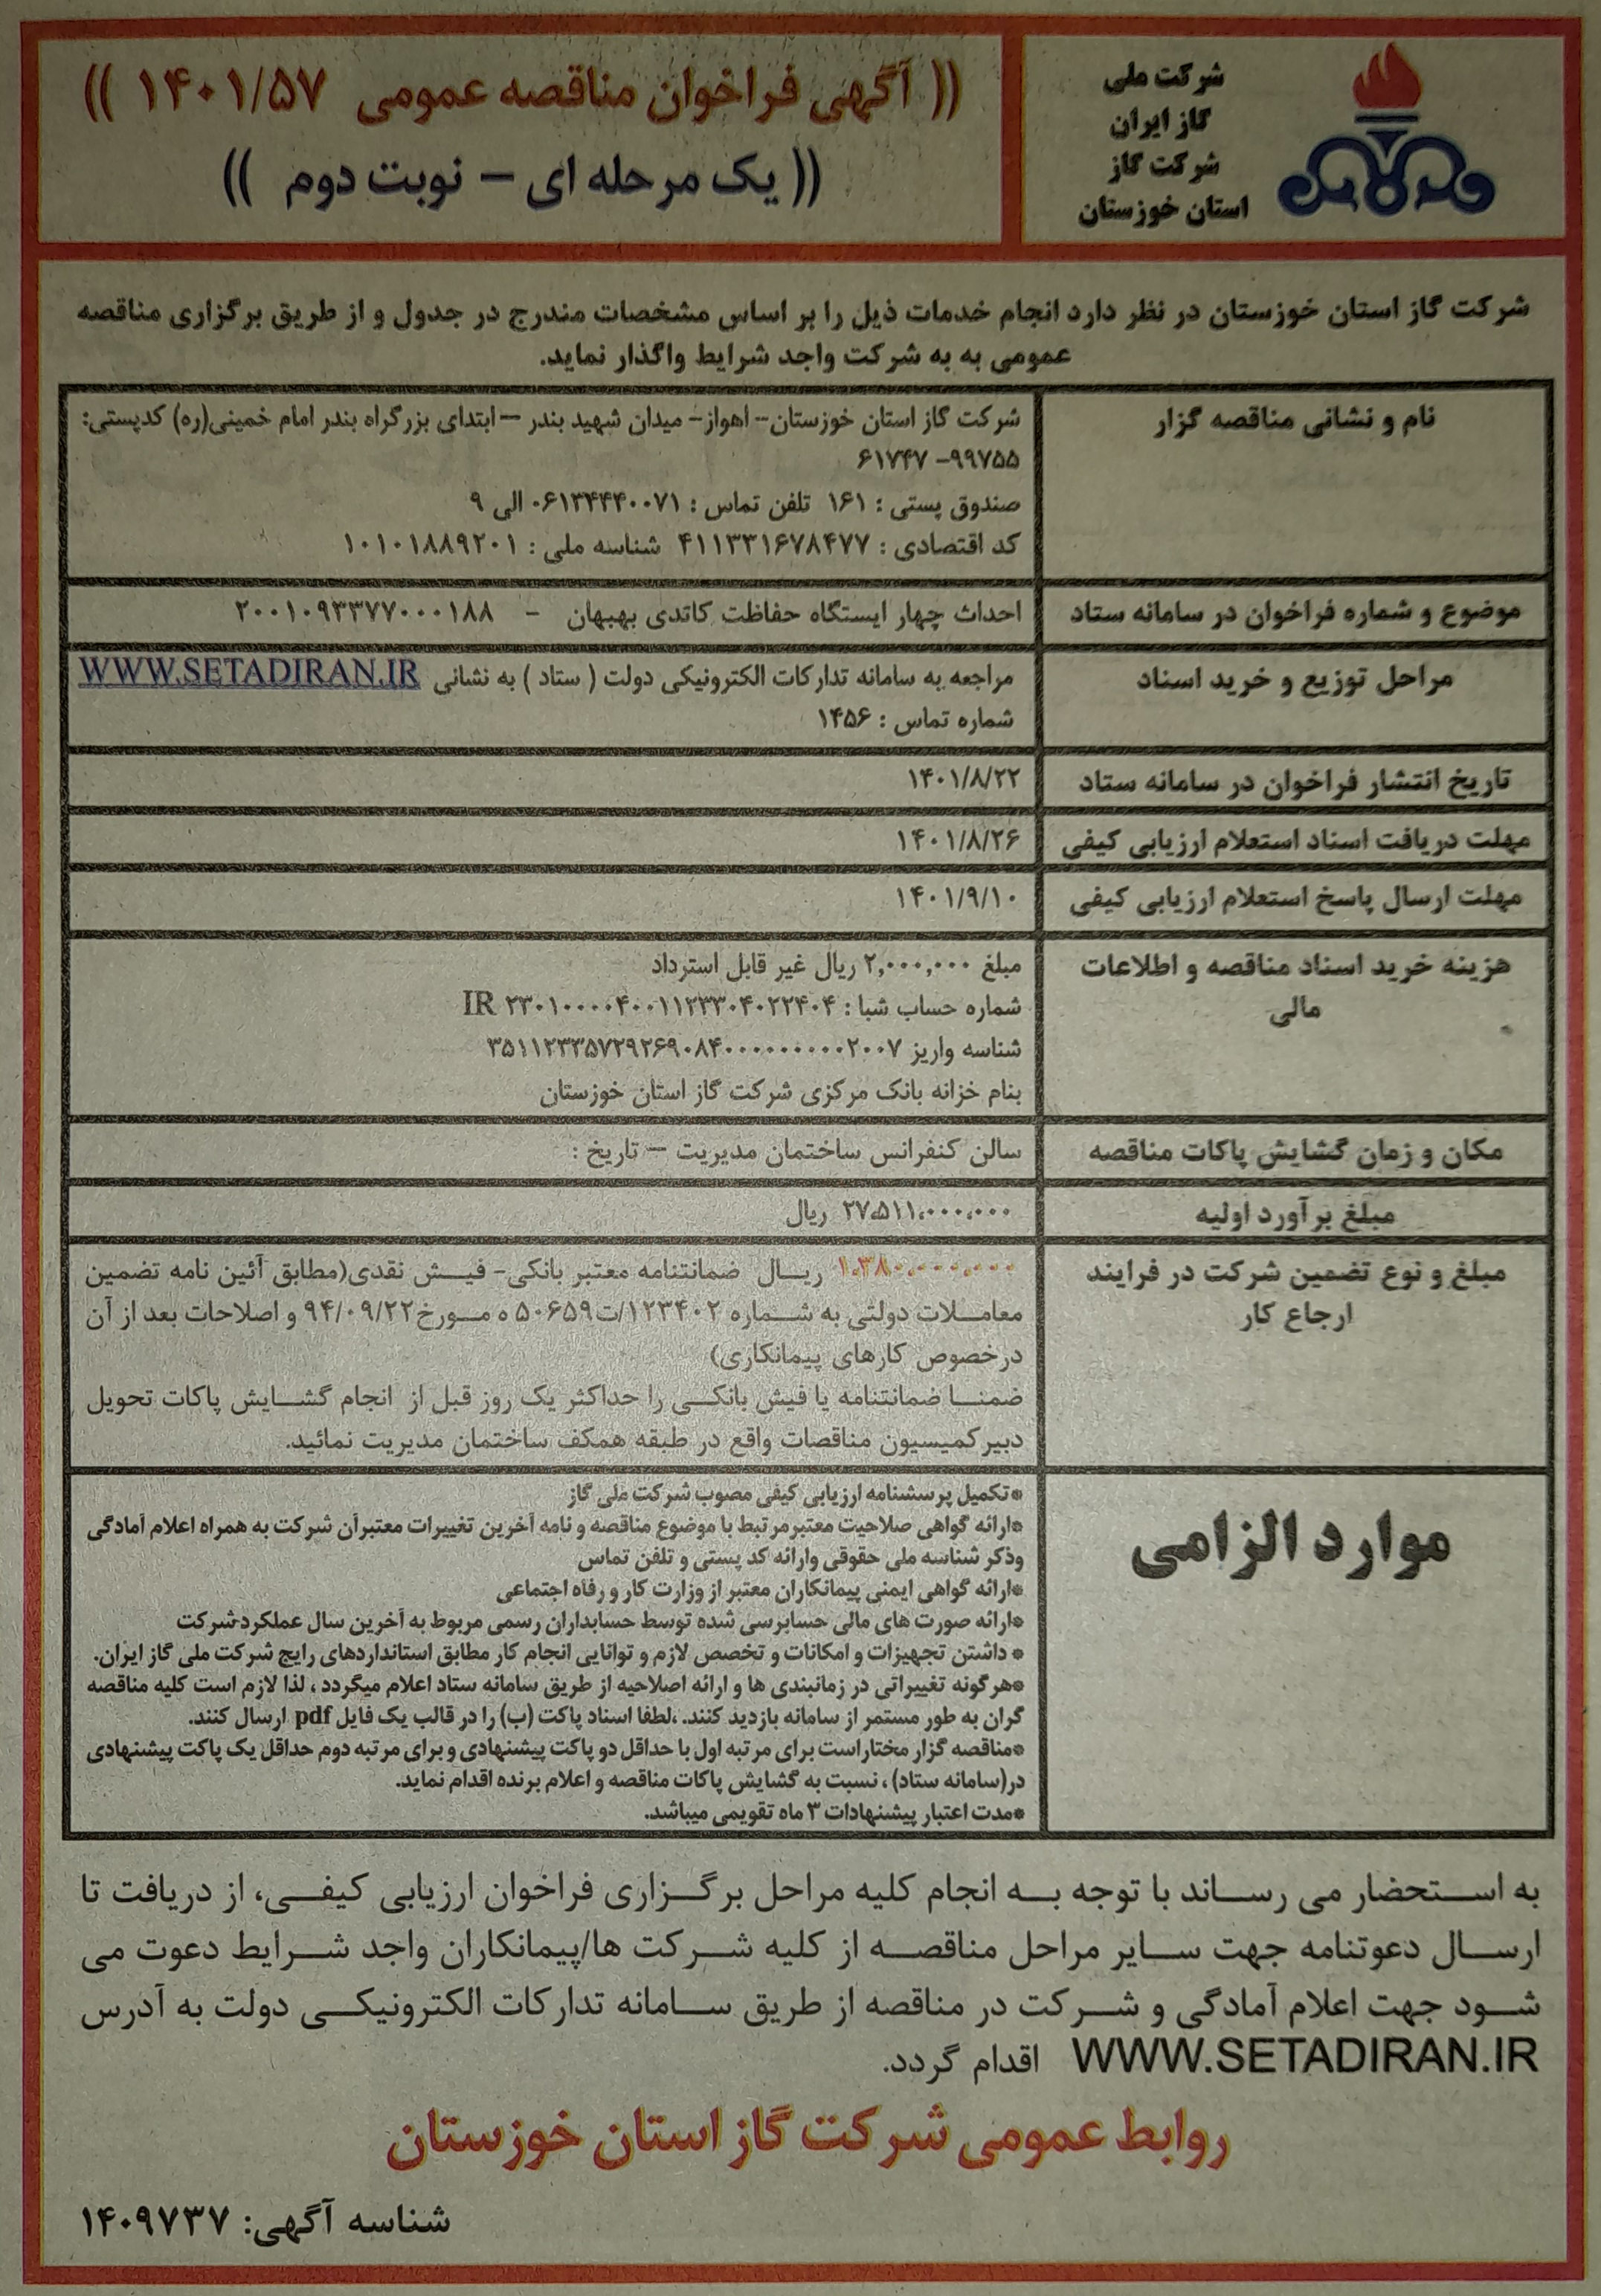 شرکت ملی
گاز ایران
شرکت گاز
استان خوزستان
(( آگهی فراخوان مناقصه عمومی ۱۴۰۱/۵۷ ))
(( یک مرحله ای – نوبت دوم ))
شرکت گاز استان خوزستان در نظر دارد انجام خدمات ذیل را بر اساس مشخصات مندرج در جدول و از طریق برگزاری مناقصه
عمومی به به شرکت واجد شرایط واگذار نماید.
نام و نشانی مناقصه گزار
شرکت گاز استان خوزستان– اهواز– میدان شهید بندر –ابتدای بزرگراه بندر امام خمینی(ره) کدپستی:
۶۱۷۴۷ –۹۹۷۵۵
صندوق پستی : ۱۶۱ تلفن تماس : ۰۶۱۳۴۴۴۰۰۷۱ الی ۹
کد اقتصادی : ۴۱۱۳۳۱۶۷۸۴۷۷ شناسه ملی : ۱۰۱۰۱۸۸۹۲۰۱
موضوع و شماره فراخوان در سامانه ستاد
احداث چهار ایستگاه حفاظت کاتدی بهبهان - ۲۰۰۱۰۹۳۳۷۷۰۰۰۱۸۸
مراحل توزیع و خرید اسناد
مراجعه به سامانه تدارکات الکترونیکی دولت ( ستاد ) به نشانی WWW.SETADIRAN.IR
شماره تماس : ۱۴۵۶
تاریخ انتشار فراخوان در سامانه ستاد
۱۴۰۱/۸/۲۲
مهلت دریافت اسناد استعلام ارزیابی کیفی
۱۴۰۱/۸/۲۶
مهلت ارسال پاسخ استعلام ارزیابی کیفی
۱۴۰۱/۹/۱۰
هزینه خرید اسناد مناقصه و اطلاعات
مالی
مبلغ ۲,۰۰۰,۰۰۰ ریال غیر قابل استرداد
شماره حساب شبا : IR ۲۳۰۱۰۰۰۰۴۰۰۱۱۲۳۳۰۴۰۲۲۴۰۴
شناسه واریز ۳۵۱۱۲۳۳۵۷۲۹۲۶۹۰۸۴۰۰۰۰۰۰۰۰۰۰۲۰۰۷
بنام خزانه بانک مرکزی شرکت گاز استان خوزستان
مکان و زمان گشایش پاکات مناقصه
سالن کنفرانس ساختمان مدیریت – تاریخ :
مبلغ برآورد اولیه
۲۷،۵۱۱،۰۰۰،۰۰۰ ریال
مبلغ و نوع تضمین شرکت در فرایند
ارجاع کار
۱،۳۸۰،۰۰۰،۰۰۰ ریال ضمانتنامه معتبر بانکی- فیش نقدی(مطابق آئین نامه تضمین
معاملات دولتی به شماره ۱۲۳۴۰۲/ت۵۰۶۵۹ ه مورخ۹۴/۰۹/۲۲ و اصلاحات بعد از آن
درخصوص کارهای پیمانکاری)
ضمنا ضمانتنامه یا فیش بانکی را حداکثر یک روز قبل از انجام گشایش پاکات تحویل
دبیرکمیسیون مناقصات واقع در طبقه همکف ساختمان مدیریت نمائید.
موارد الزامی
*تکمیل پرسشنامه ارزیابی کیفی مصوب شرکت ملی گاز
*ارائه گواهی صلاحیت معتبرمرتبط با موضوع مناقصه و نامه آخرین تغییرات معتبرآن شرکت به همراه اعلام آمادگی
وذکر شناسه ملی حقوقی وارائه کد پستی و تلفن تماس
*ارائه گواهی ایمنی پیمانکاران معتبر از وزارت کار و رفاه اجتماعی
*ارائه صورت های مالی حسابرسی شده توسط حسابداران رسمی مربوط به آخرین سال عملکرد شرکت
* داشتن تجهیزات و امکانات و تخصص لازم و توانایی انجام کار مطابق استانداردهای رایج شرکت ملی گاز ایران.
*هرگونه تغییراتی در زمانبندی ها و ارائه اصلاحیه از طریق سامانه ستاد اعلام میگردد ، لذا لازم است کلیه مناقصه
گران به طور مستمر از سامانه بازدید کنند. ،لطفا اسناد پاکت (ب) را در قالب یک فایل pdf ارسال کنند.
*مناقصه گزار مختاراست برای مرتبه اول با حداقل دو پاکت پیشنهادی و برای مرتبه دوم حداقل یک پاکت پیشنهادی
در(سامانه ستاد) ، نسبت به گشایش پاکات مناقصه و اعلام برنده اقدام نماید.
*مدت اعتبار پیشنهادات ۳ ماه تقویمی میباشد.
به استحضار می رساند با توجه به انجام کلیه مراحل برگزاری فراخوان ارزیابی کیفی، از دریافت تا
ارسال دعوتنامه جهت سایر مراحل مناقصه از کلیه شرکت ها/پیمانکاران واجد شرایط دعوت می
شود جهت اعلام آمادگی و شرکت در مناقصه از طریق سامانه تدارکات الکترونیکی دولت به آدرس
WWW.SETADIRAN.IR اقدام گردد.
روابط عمومی شرکت گاز استان خوزستان
شناسه آگهی: ۱۴۰۹۷۳۷